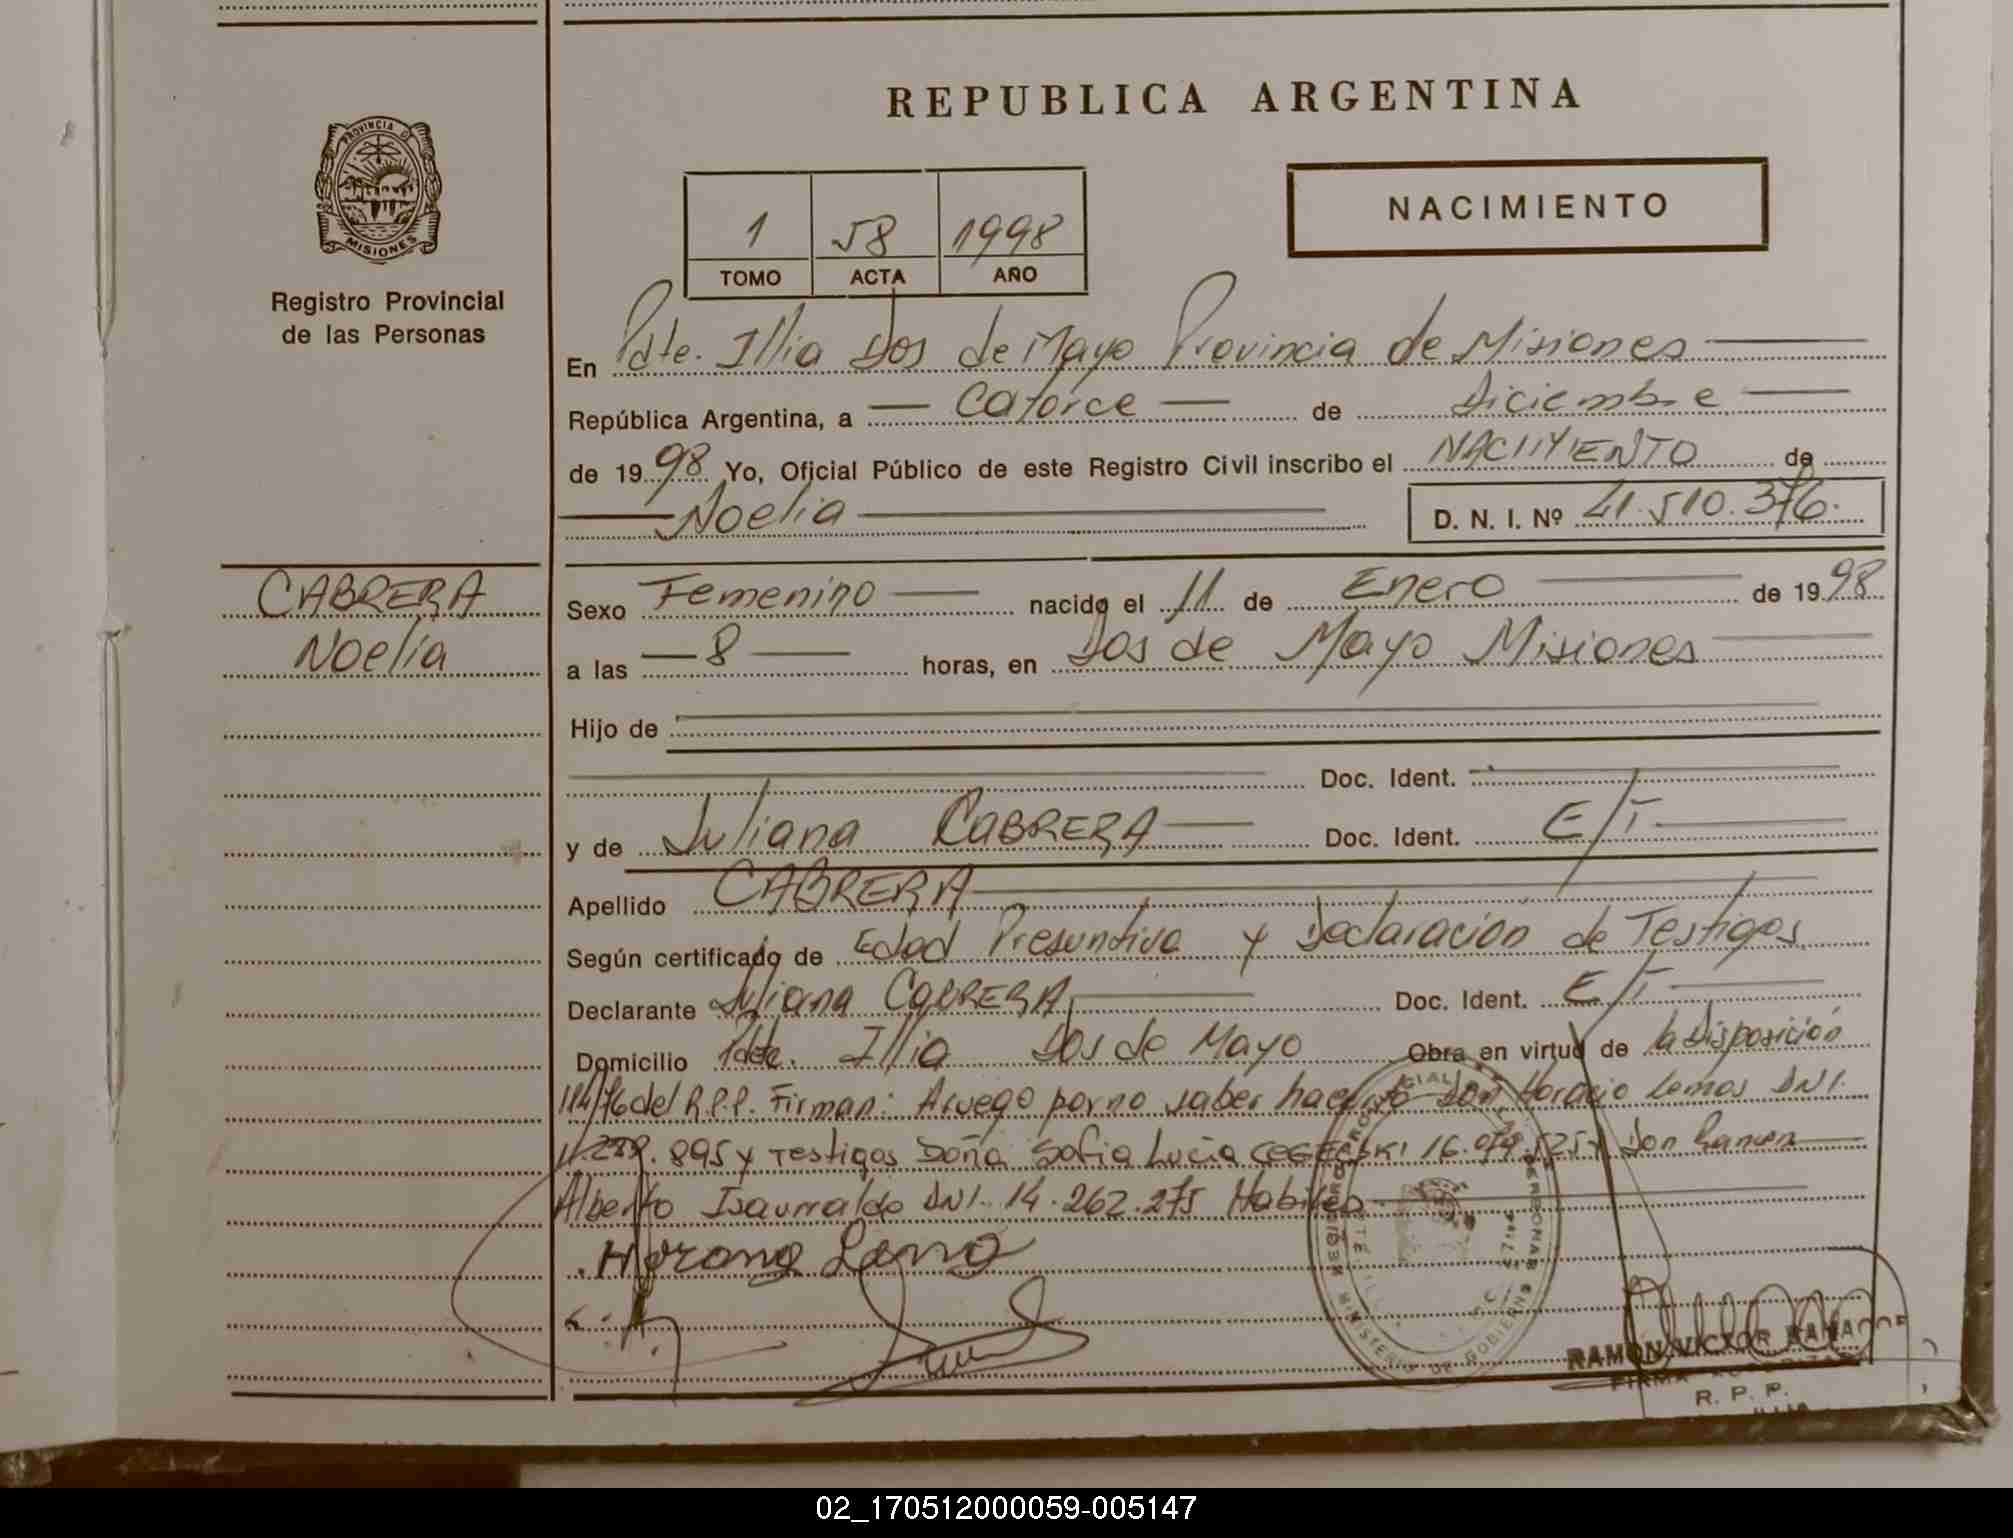 REPUBLICA ARGENTINA
PROVINCIA DE
MISIONES
Registro Provincial
de las Personas
1 58 1998
TOMO ACTA AÑO
NACIMIENTO
En Pdte. Illia Dos de Mayo Provincia de Misiones
República Argentina, a Catorce de Diciembre
de 1998 Yo, Oficial Público de este Registro Civil inscribo el NACIMIENTO de
Noelia D. N. I. Nº 41.510.376.
CABRERA
Noelia
Sexo Femenino nacido el 11 de Enero de 1998
a las 8 horas, en Dos de Mayo Misiones
Hijo de
Doc. Ident.
y de Juliana CABRERA Doc. Ident. E/T
Apellido CABRERA
Según certificado de Edad Presuntiva y Declaración de Testigos
Declarante Juliana CABRERA Doc. Ident. E/T
Domicilio Pdte. Illia Dos de Mayo Obra en virtud de la Disposición
114/76 del R.P.P. Firman: A ruego por no saber hacerlo Don Horacio Lemos DNI.
895 y Testigos Doña Sofia Lucia y Don Ramon
Alberto Isaurralde DNI. 14.262.275 Habiles
MINISTERIO DE GOBIERNO
RAMON VICTOR
FIRMA
R. P. P.
02_170512000059-005147